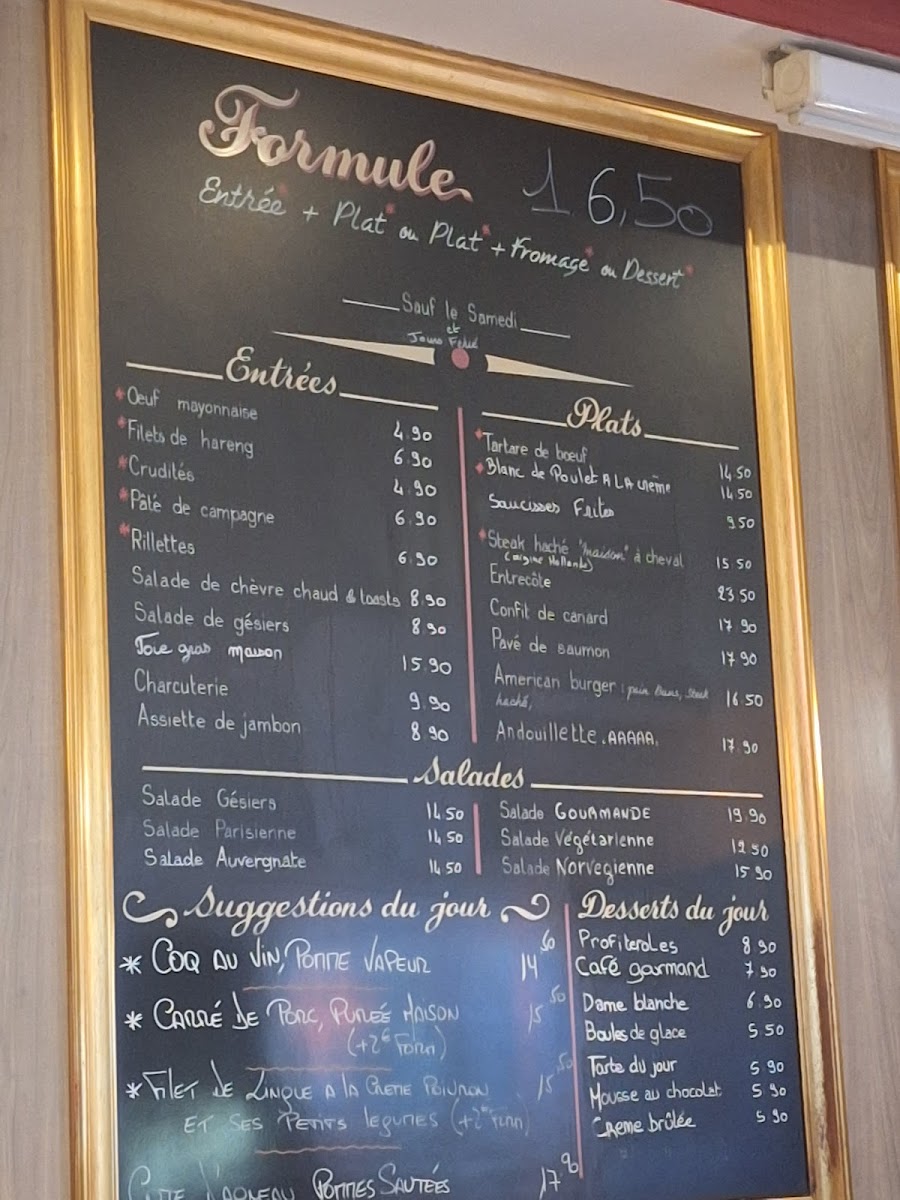 Formule 16,50
Entrée* + Plat* ou Plat* + Fromage* ou Dessert*
Sauf le Samedi
et
Jours Férié
Entrées
*Oeuf mayonnaise 4.90
*Filets de hareng 6.90
*Crudités 4.90
*Pâté de campagne 6.90
*Rillettes 6.90
Salade de chèvre chaud & toasts 8.90
Salade de gésiers 8.90
Foie gras maison 15.90
Charcuterie 9.90
Assiette de jambon 8.90
Plats
*Tartare de bœuf 14.50
*Blanc de Poulet A LA crème 14.50
Saucisses Frites 9.50
*Steak haché "maison" à cheval 15.50
(origine Hollande)
Entrecôte 23.50
Confit de canard 17.90
Pavé de saumon 17.90
American burger : pain Buns, steak 16.50
haché,
Andouillette.AAAAA. 17.90
Salades
Salade Gésiers 14.50
Salade Parisienne 14.50
Salade Auvergnate 14.50
Salade GOURMANDE 19.90
Salade Végétarienne 12.50
Salade Norvegienne 15.90
Suggestions du jour
* COQ AU VIN, POMME VAPEUR 14 50
* CARRÉ DE PORC, PURÉE MAISON 15 50
(+2€ Form)
* FILET DE LINGUE A LA CREME POIVRON 15 50
ET SES PETITS LEGUMES (+2€ Form)
D'AGNEAU POMMES SAUTÉES 17 90
Desserts du jour
Profiteroles 8.90
Café gourmand 7.90
Dame blanche 6.90
Boules de glace 5.50
Tarte du jour 5.90
Mousse au chocolat 5.90
Creme brûlée 5.90